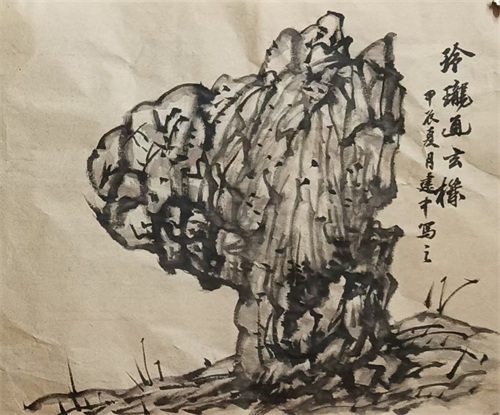 玲瓏通玄機
甲辰夏月建中寫之